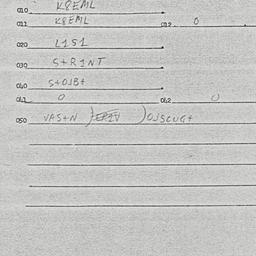 010 K8EML
011 K8EML 012 0
020 L151
030 S+R1NT
040 S+OJB+
041 0 042 0
050 VAS+N ) ) OJSCUG+